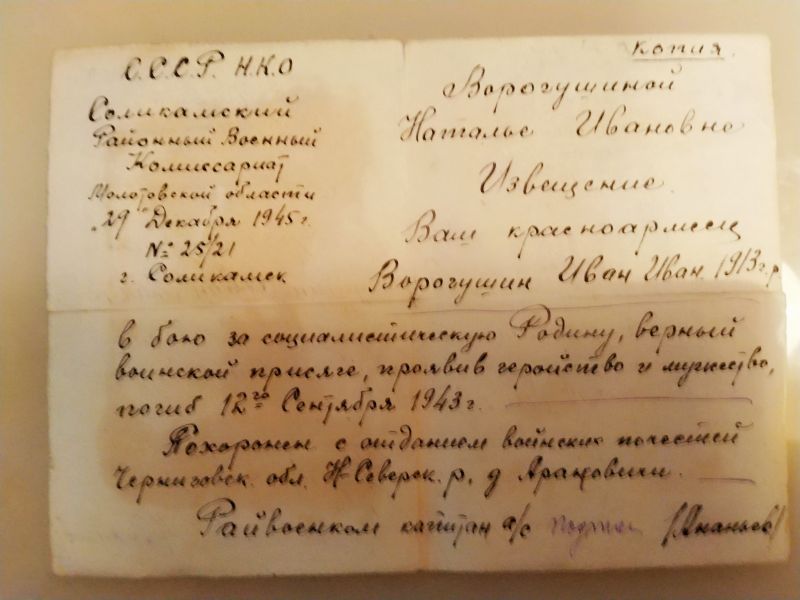 С.С.С.Р. Н.К.О
Соликамский
Районный Военный
Комиссариат
Молотовской области
"29" Декабря 1945 г.
№ 25/21
г. Соликамск
копия.
Ворогушиной
Наталье Ивановне
Извещение.
Ваш красноармеец
Ворогушин Иван Иван. 1913 г. р
в бою за социалистическую Родину, верный
воинской присяге, проявив геройство и мужество,
погиб 12го Сентября 1943 г.
Похоронен с отданием воинских почестей
Черниговск. обл. Н-Северск. р, д
Райвоенком капитан а/с /Ананьев/